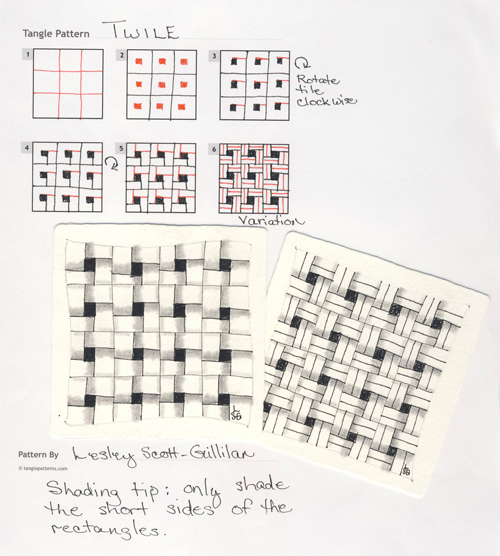 Tangle Pattern TWILE
1 2 3
Rotate
tile
clockwise
4 5 6
Variation
Pattern By Lesley Scott-Gillilan
© tanglepatterns.com
Shading tip: only shade
the short sides of the
rectangles.